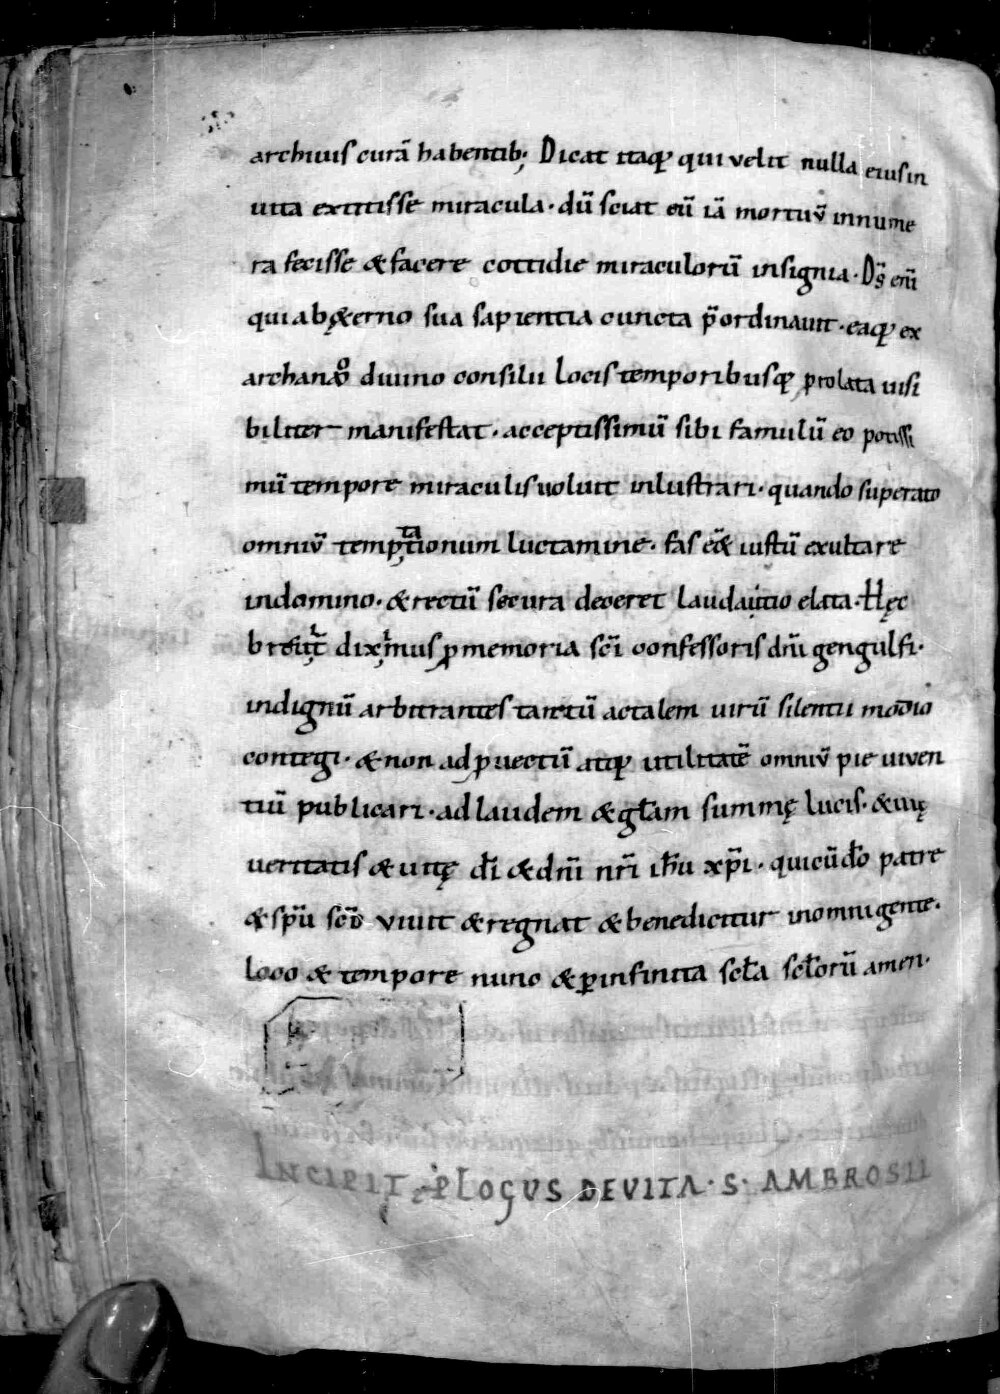 archiuis curā habentib; Dicat itaq qui velit nulla eius in
uita extitisse miracula · dū sciat eū iā mortuū innume
ra fecisse & facere cottidie miraculorū insignia · Ds̄ eni̅
qui ab ę&erno sua sapientia cuncta p̄ordinauit · eaq ex
archano diuino consilii locis temporibusq prolata uisi
biliter manifestat · acceptissimū sibi famulū eo potissi
mū tempore miraculis uoluit inlustrari · quando superato
omniū temptationum luctamine · fas eē& iustū exultare
in domino · & rectū secura deceret laudatio elata · Hęc
breuit̄ diximus ꝓ memoria sc̄i confessoris dn̄i gengulfi ·
indignū arbitrantes tantū ac talem uirū silentii modio
contegi · & non ad ꝓuectū atq utilitatē omniū pie uiuen
tiū publicari · ad laudem & gl̄am summę lucis · & uię
ueritatis & uitę dī & dn̄i nr̄i ih̄u xp̄i · qui cū dō patre
& sp̄u sc̄o viuit & regnat & benedicitur in omni gente ·
loco & tempore nunc & ꝑ infinita scl̄a scl̄orū amen ·
INCIPIT PLOGUS DE VITA · S · AMBROSII